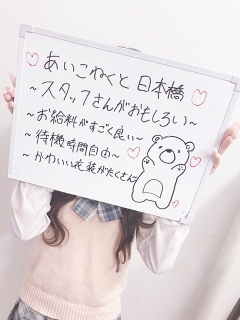 あいこねくと 日本橋
~スタッフさんがおもしろい~
~お給料がすごく良い~
~待機時間自由~
~かわいい衣装がたくさん~